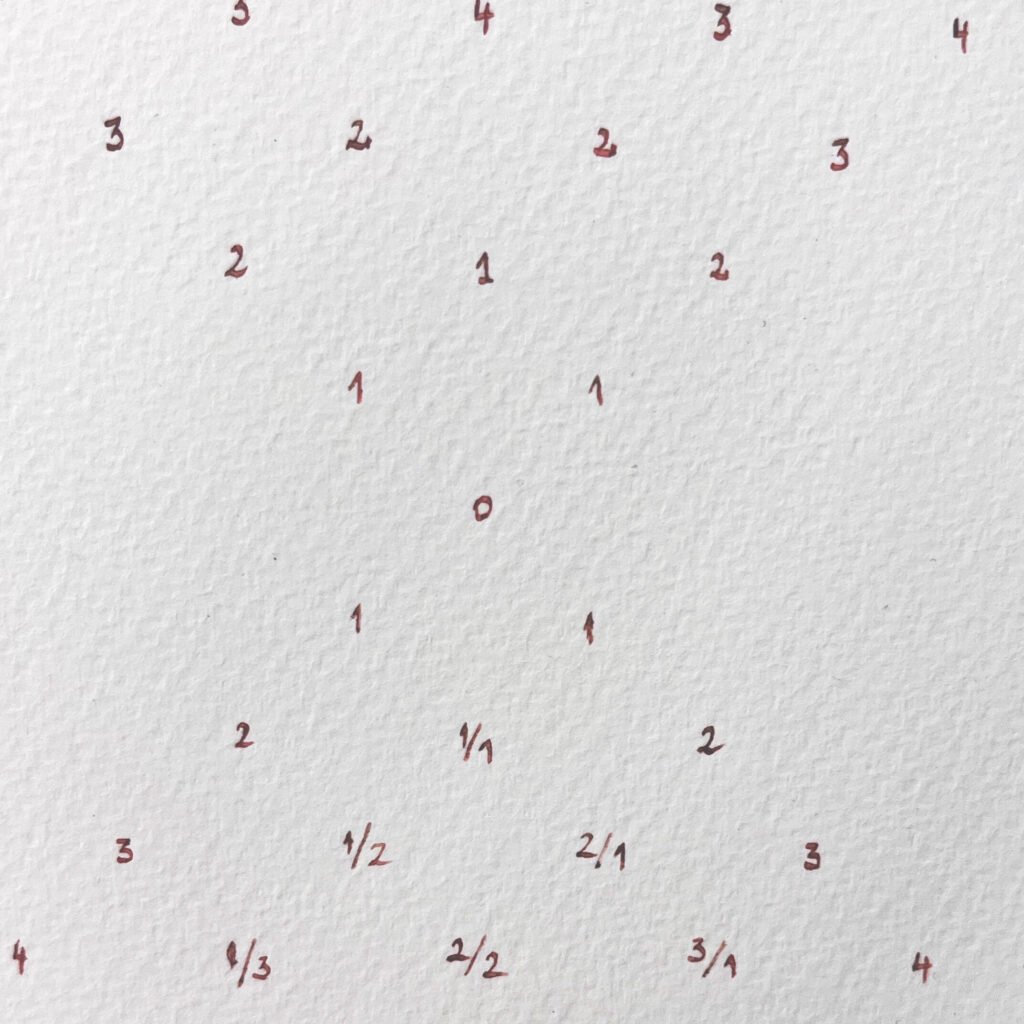 3 4 3 4
3 2 2 3
2 1 2
1 1
0
1 1
2 1/1 2
3 1/2 2/1 3
4 1/3 2/2 3/1 4